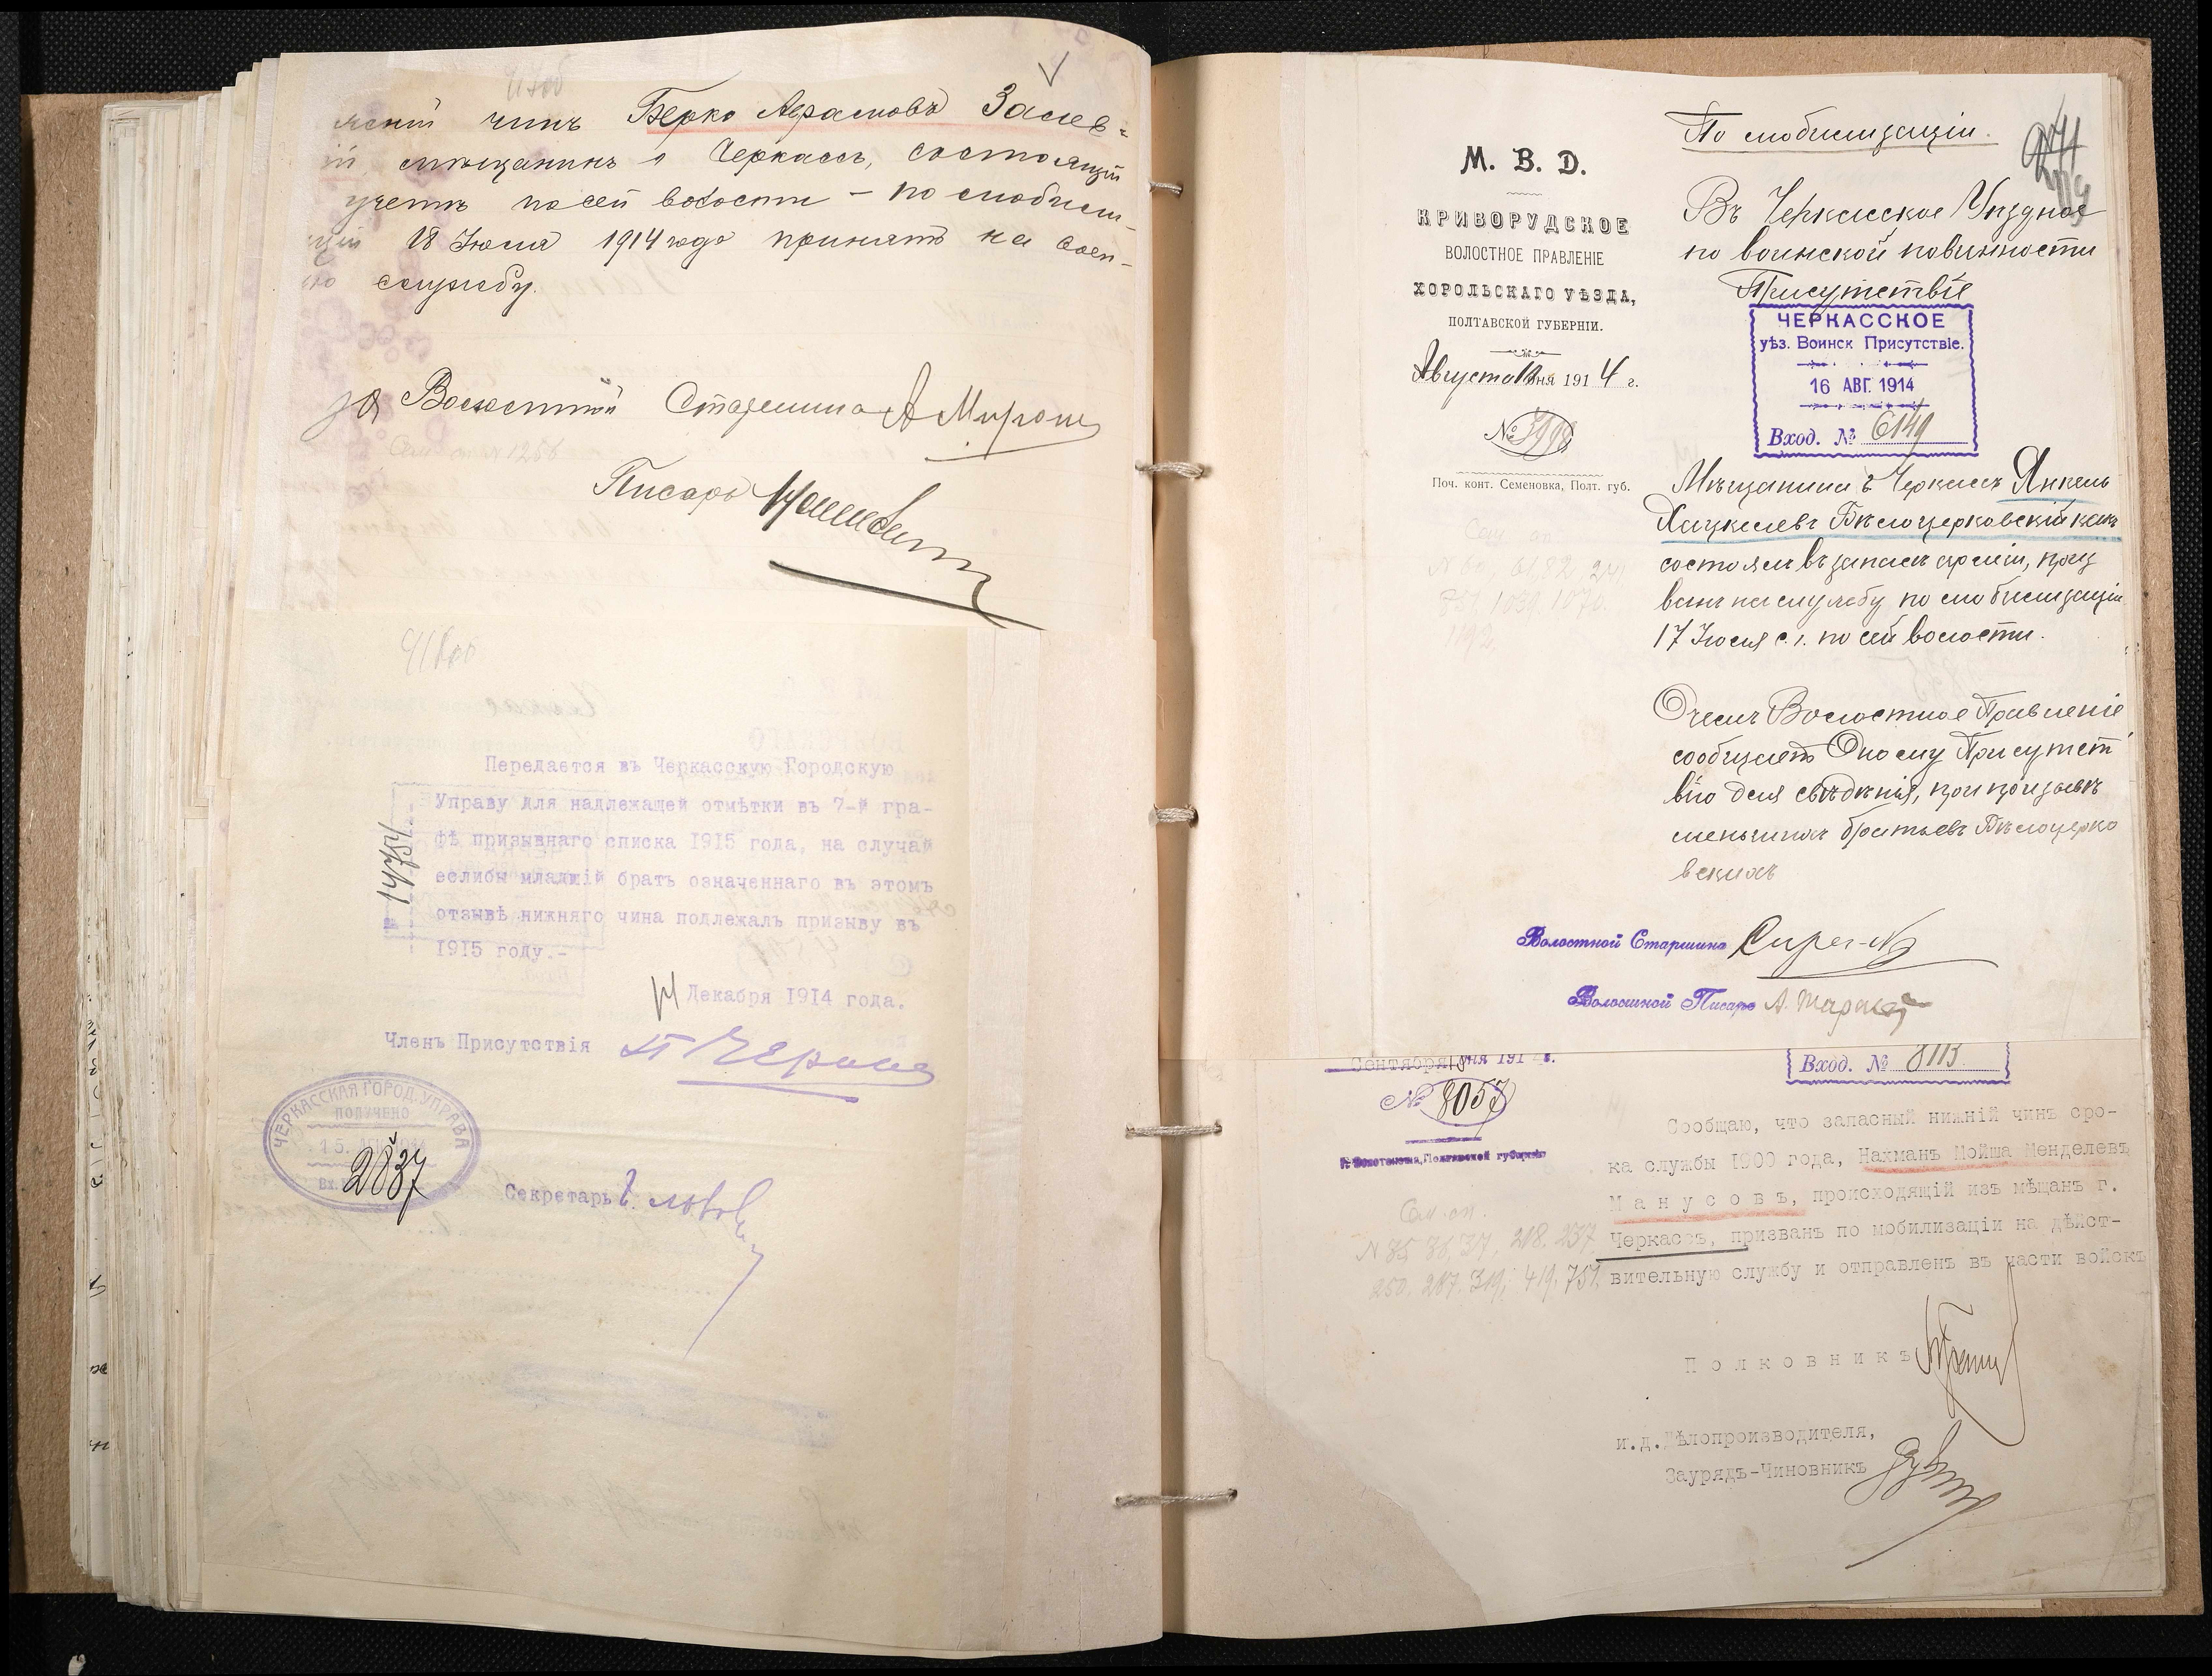 чинъ Берко Абрамовъ Заслав-
мѣщанинъ г. Черкассъ, состоящій
учетѣ по сей волости – по мобили-
18 Іюля 1914 года принятъ на воен-
службу.
за Волостной Старшина А Мирош
Писарь
Передается въ Черкасскую Городскую
Управу для надлежащей отмѣтки въ 7-й гра-
фѣ призывнаго списка 1915 года, на случай
еслибы младшій братъ означеннаго въ этомъ
отзывѣ нижняго чина подлежалъ призыву въ
1915 году.-
14 Декабря 1914 года.
Членъ Присутствія
ЧЕРКАССКАЯ ГОРОД. УПРАВА
ПОЛУЧЕНО
15
2837
Секретарь
По мобилизаціи.
М. В. Д.
КРИВОРУДСКОЕ
ВОЛОСТНОЕ ПРАВЛЕНІЕ
ХОРОЛЬСКАГО УѢЗДА,
ПОЛТАВСКОЙ ГУБЕРНІИ.
Августа 12 дня 1914 г.
№ 3998
Поч. конт. Семеновка, Полт. губ.
Въ Черкасское Уѣздное
по воинской повинности
Присутствіе
ЧЕРКАССКОЕ
уѣз. Воинск Присутствіе.
16 АВГ. 1914
Вход. № 6149
Мѣщанинъ г. Черкассъ Янкель
Хацкелевъ Бѣлоцерковскій какъ
состоялъ въ запасѣ арміи, приз
ванъ на службу по мобилизаціи
17 Іюля с. г. по сей волости.
О чемъ Волостное Правленіе
сообщаетъ Оному Присутст
вію для свѣдѣнія, при призывѣ
меньшихъ братьевъ Бѣлоцерко
вскихъ
Волостной Старшина
Волостной Писарь А.
Сентября 18 дня 191 г.
№ 8057
г. Золотоноша, Полтавской губерніи
Вход. № 8113.
Сообщаю, что запасный нижній чинъ сро-
ка службы 1900 года, Нахманъ Мойша Менделевъ
Манусовъ, происходящій изъ мѣщанъ г.
Черкассъ, призванъ по мобилизаціи на дѣйст-
вительную службу и отправленъ въ части войскъ
Сем. сп.
N 35. 36. 37. 218. 237.
250. 287. 319. 419. 751.
Полковникъ
и.д.Дѣлопроизводителя,
Заурядъ-Чиновникъ